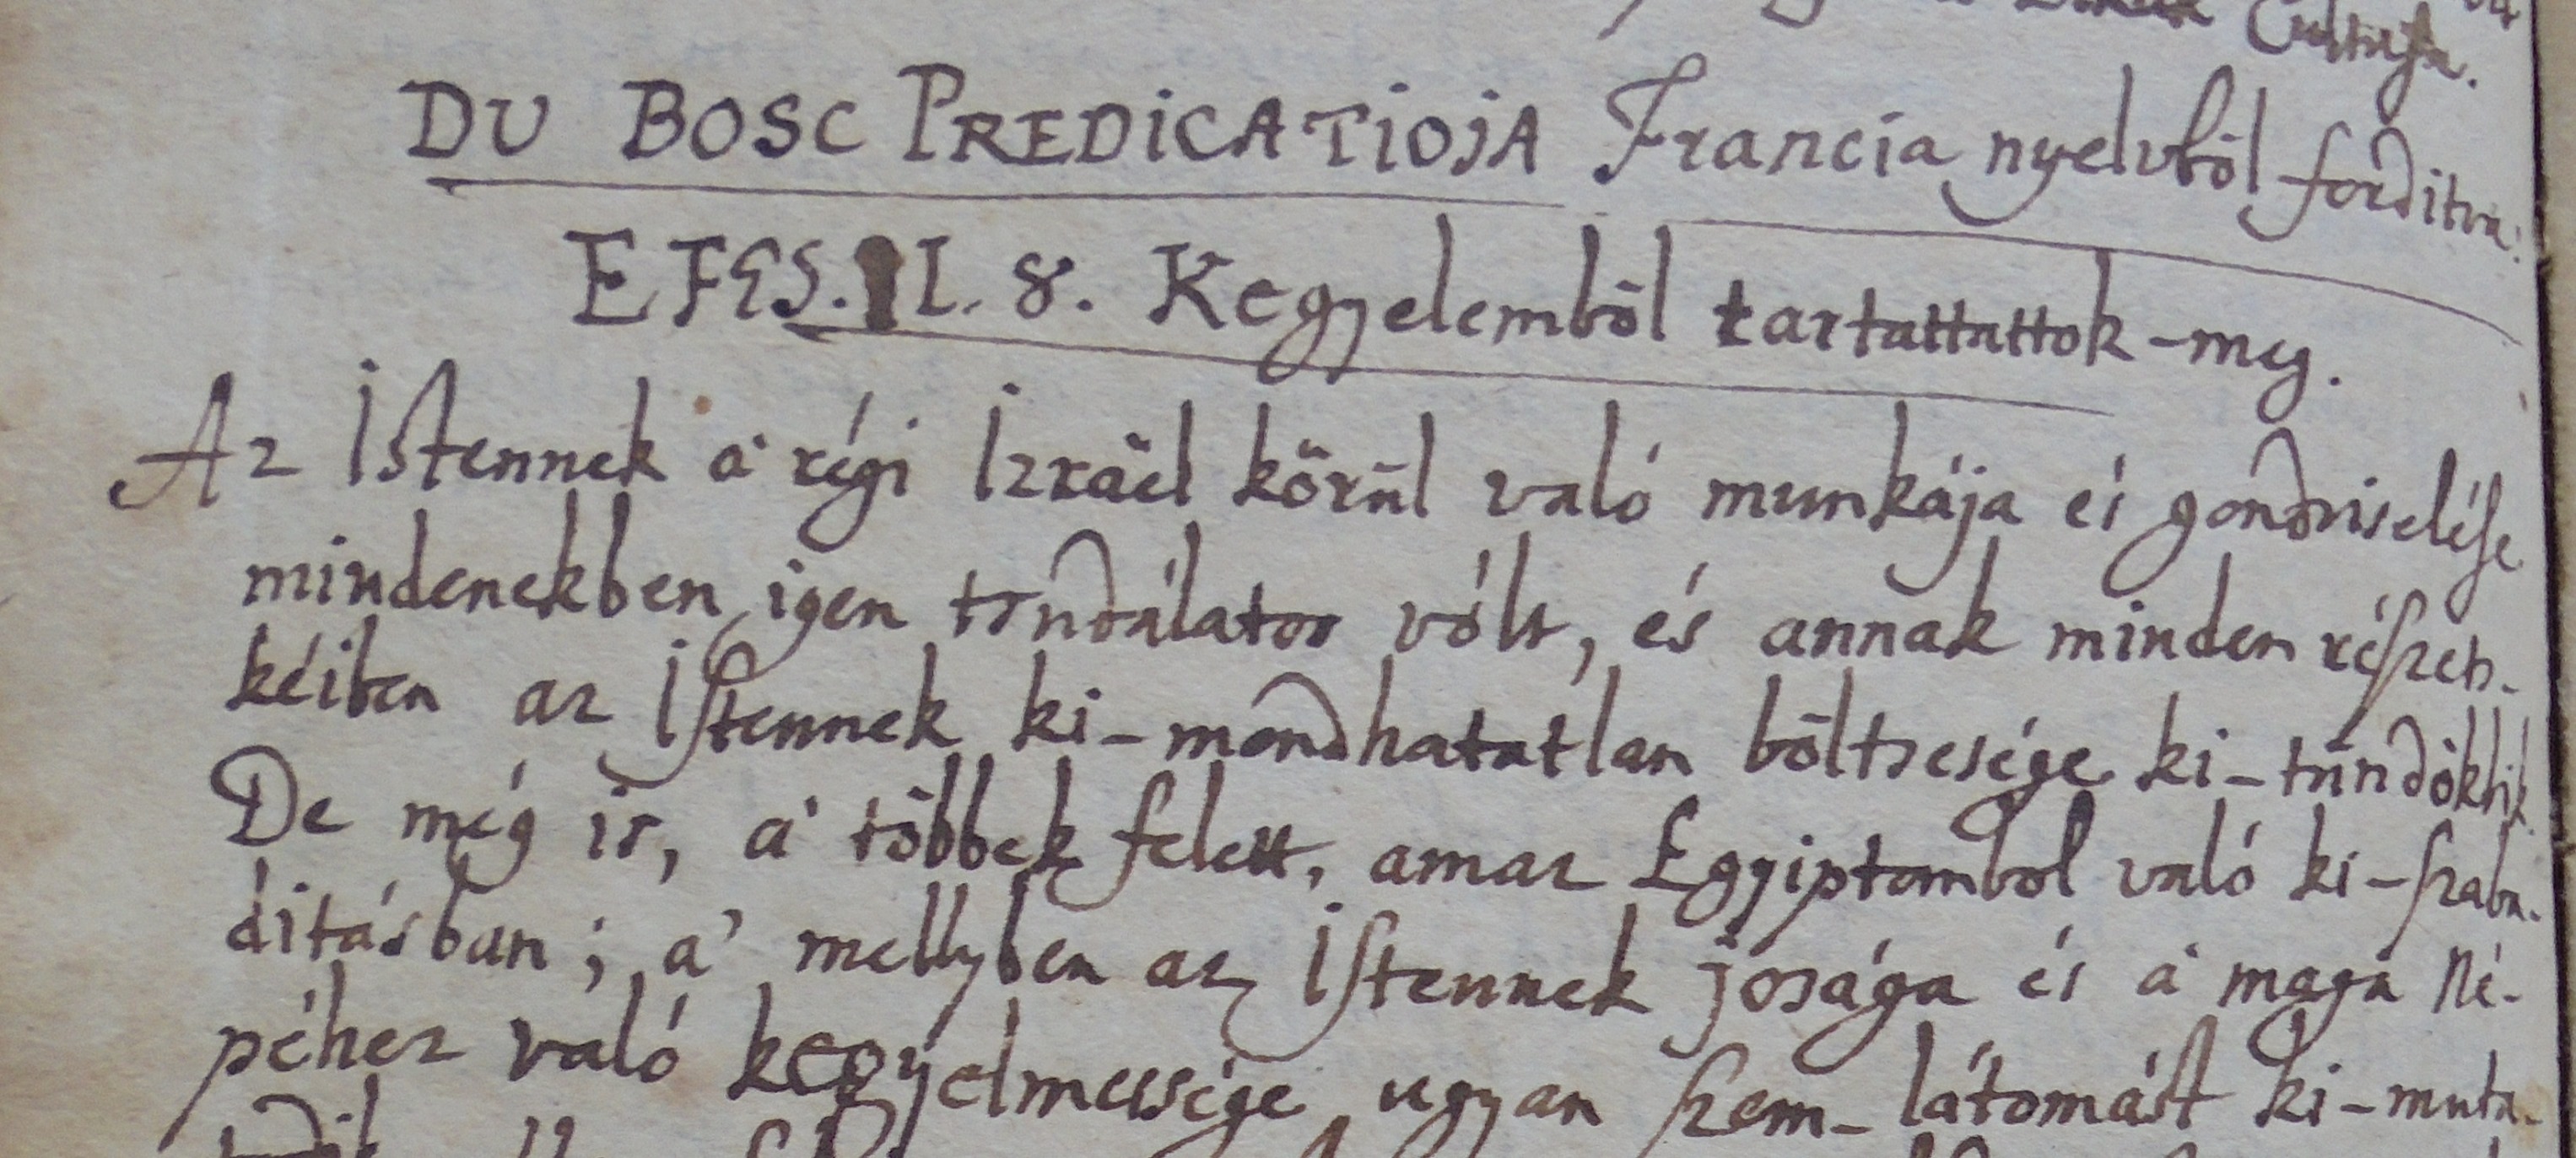 DU BOSC PREDICATIOJA Francia nyelvből forditva.
EFES. II. 8. Kegyelemből tartattattok-meg.
Az Istennek a' régi Izráel körül való munkája és gondviselése
mindenekben igen tsudálatos vólt, és annak minden részets-
kéiben az Istennek ki-mondhatatlan böltsesége ki-tündöklik
De még is, a' többek felett, amaz Egyiptombol való ki-szaba-
ditásban; a' mellyben az Istennek jósága és a' maga Né-
péhez való kegyelmessége ugyan szem-látomást ki-muta-